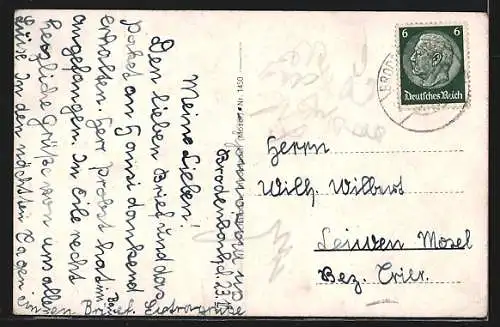 Brodenbach, d. 23.
Meine Lieben!
Den lieben Brief und das
Paket an Hansi dankend
erhalten. Herr Probst hat
angefangen. In Eile recht
herzliche Grüße von uns allen
Luise. In den nächsten Tagen
einen Brief.
(Mosel) Nr. 1450
6 6
Deutsches Reich
BROD
Herrn
Wilh. Wilbert
Leiwen Mosel
Bez. Trier.